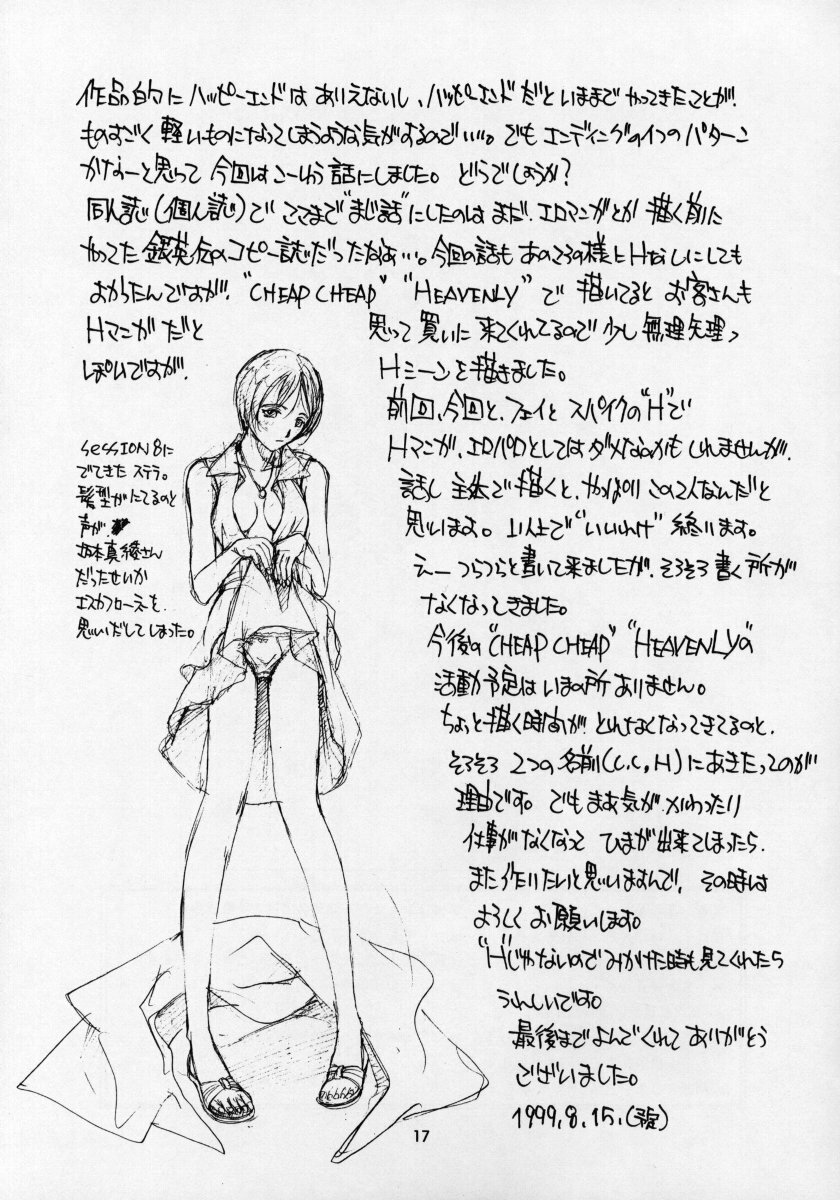 作品的にハッピーエンドはありえないし、ハッピーエンドだといままでやってきたことが、
ものすごく軽いものになってしまうような気がするので…。でもエンディングの1つのパターン
かなーと思って今回はこーいう話にしました。どうでしょうか?
同人誌(個人誌)でここまで"まじ話"にしたのはまだ、エロマンガとか描く前に
やってた銀英伝のコピー誌だったなあ…。今回の話もあのころの様にHなしにしても
よかったんですが、"CHEAP CHEAP" "HEAVENLY"で描いてるとお客さんも
Hマンガだと思って買いに来てくれてるので少し無理矢理っ
ぽいですが、Hシーンを描きました。
前回、今回と、フェイとスパイクの"H"で
Hマンガ、エロパロとしてはダメなのかもしれませんが、
話し主体で描くと、やっぱりこの2人なんだと
思います。以上で"いいわけ"終ります。
えーつらつらと書いて来ましたが、そろそろ書く所が
なくなってきました。
今後の"CHEAP CHEAP" "HEAVENLY"の
活動予定はいまの所ありません。
ちょっと描く時間が、とれなくなってきてるのと、
そろそろ2つの名前(C.C,H)にあきたってのが
理由です。でもまあ気が、かわったり
仕事がなくなってひまが出来てしまったら、
また作りたいと思いますんで、その時は
よろしくお願いします。
"H"じゃないのでみかけた時も見てくれたら
うれしいです。
最後までよんでくれてありがとう
ございました。
1999.8.15.
SESSION8に
でてきたステラ。
髪型がにてるのと
声が、
坂本真綾さん
だったせいか
エスカフローネを
思いだしてしまった。
17